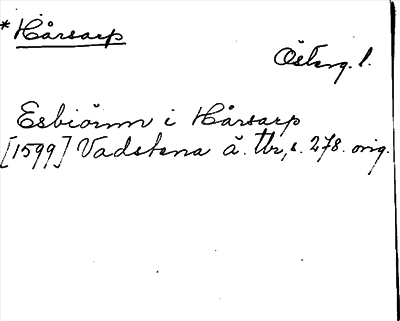 * Hårsarp
Österg. l.
Esbiörnn i Hårsarp
[1599] Vadstena ä. tbr, s. 278. orig.